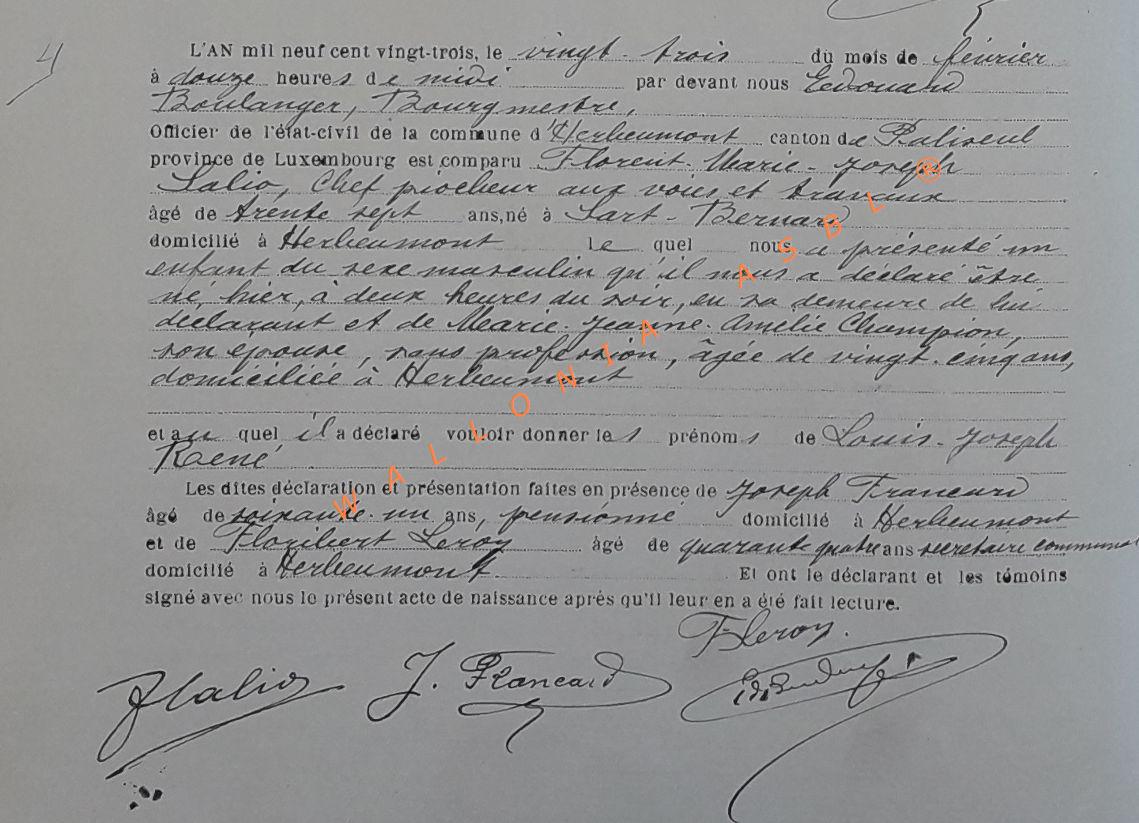 4
L'AN mil neuf cent vingt-trois, le vingt-trois du mois de février
à douze heures de midi par devant nous Edouard
Boulanger, Bourgmestre,
Officier de l'état-civil de la commune d'Herbeumont canton de Paliseul
province de Luxembourg est comparu Florent-Marie-Joseph
Lalio, Chef piocheur aux voies et travaux
âgé de trente sept ans, né à Sart-Bernard
domicilié à Herbeumont le quel nous a présenté un
enfant du sexe masculin qu'il nous a déclaré être
né, hier, à deux heures du soir, en sa demeure de lui
déclarant et de Marie-Jeanne-Amélie Champion,
son épouse, sans profession, âgée de vingt-cinq ans,
domiciliée à Herbeumont
et au quel il a déclaré vouloir donner les prénoms de Louis-Joseph
René
Les dites déclaration et présentation faites en présence de Joseph Francard
âgé de soixante-un ans, pensionné domicilié à Herbeumont
et de Floribert Leroy âgé de quarante quatre ans secrétaire communal
domicilié à Herbeumont. Et ont le déclarant et les témoins
signé avec nous le présent acte de naissance après qu'il leur en a été fait lecture.
F Leroy.
F Lalio J. Francard
WALLONIA ASBL ®